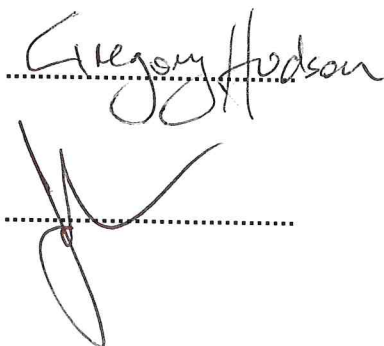 Gregory Hudson